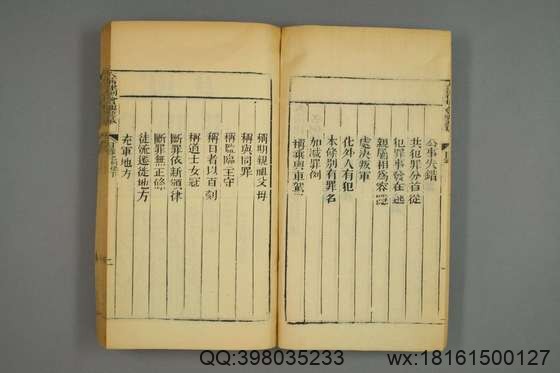 公事失錯
共犯罪分首從
犯罪事發在逃
親屬相為容隱
處決叛軍
化外人有犯
本條別有罪名
加減罪例
稱乘輿車駕
稱期親祖父母
稱與同罪
稱監臨主守
稱日者以百刻
稱道士女冠
斷罪依新頒律
斷罪無正條
徒流遷徙地方
充軍地方
QQ:398035233
wx:18161500127